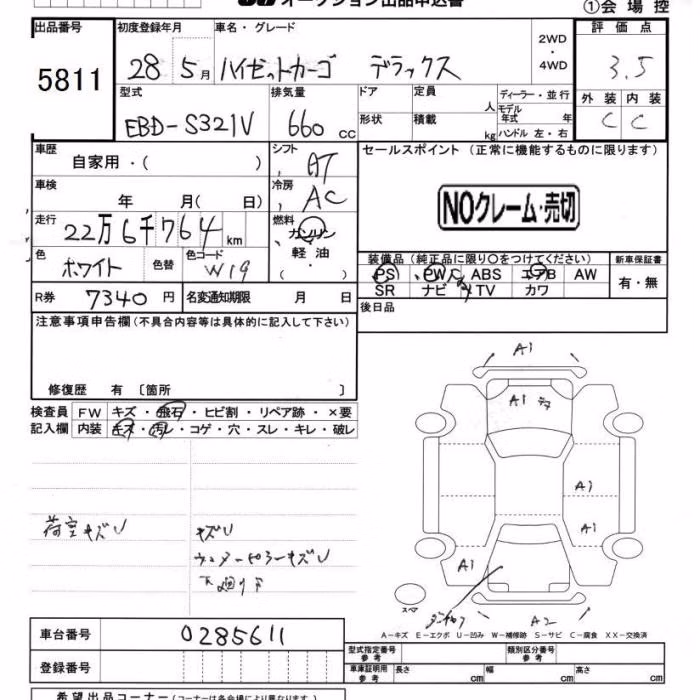 オークション出品申込書
①会場控
出品番号 初度登録年月 車名・グレード 2WD・4WD 評価点
5811 28年5月 ハイゼットカーゴ デラックス 3.5
型式 排気量 ドア 定員 人 ディーラー・並行 外装 内装
EBD-S321V 660cc 形状 積載 kg モデル年式 年 ハンドル 左・右 C C
車歴 自家用・( ) シフト AT セールスポイント (正常に機能するものに限ります)
車検 年 月( 日) 冷房 AC
NOクレーム・売切
走行 22万6千764km 燃料 ガソリン・軽油・( )
色 ホワイト 色替 色コード W19
装備品 (純正品に限り○をつけてください) 新車保証書
PS PW ABS エアB AW 有・無
SR ナビ TV カワ
R券 7340円 名変通知期限 月 日 後日品
注意事項申告欄 (不具合内容等は具体的に記入して下さい)
修復歴 有 〔箇所 〕
検査員 FW キズ・飛石・ヒビ割・リペア跡・×要
記入欄 内装 キズ・汚レ・コゲ・穴・スレ・キレ・破レ
A1
A1
A1
A1
荷室キズU キズU
A1
下廻りサ
スペア
A2
A-キズ E-エクボ U-凹み W-補修跡 S-サビ C-腐食 XX-交換済
車台番号 0285611
型式指定番号 参考 類別区分番号 参考
登録番号 車庫証明用 参考 長さ cm 幅 cm 高さ cm
希望出品コーナー (コーナーは各会場により異なります。)